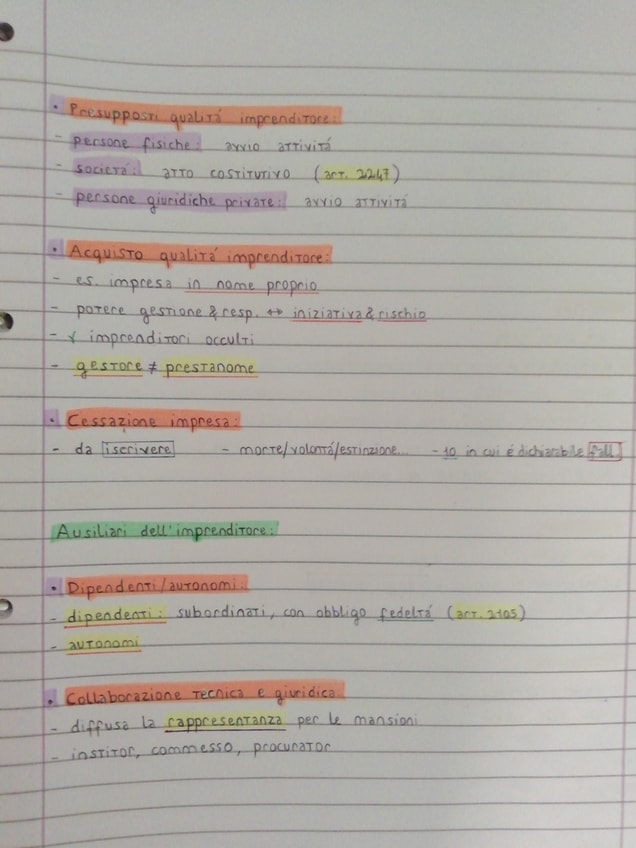 • Presupposti qualitá imprenditore:
- persone fisiche: avvio attivitá
- societá: atto costitutivo (art. 2247)
- persone giuridiche private: avvio attivitá
• Acquisto qualitá imprenditore:
- es. impresa in nome proprio
- potere gestione & resp. ↔ iniziativa & rischio
- imprenditori occulti
- gestore ≠ prestanome
• Cessazione impresa:
- da iscrivere - morte/volontá/estinzione... - 10 in cui é dichiarabile fall.
Ausiliari dell'imprenditore:
• Dipendenti/autonomi:
- dipendenti: subordinati, con obbligo fedeltá (art. 2105)
- autonomi
• Collaborazione tecnica e giuridica:
- diffusa la rappresentanza per le mansioni
- institor, commesso, procurator